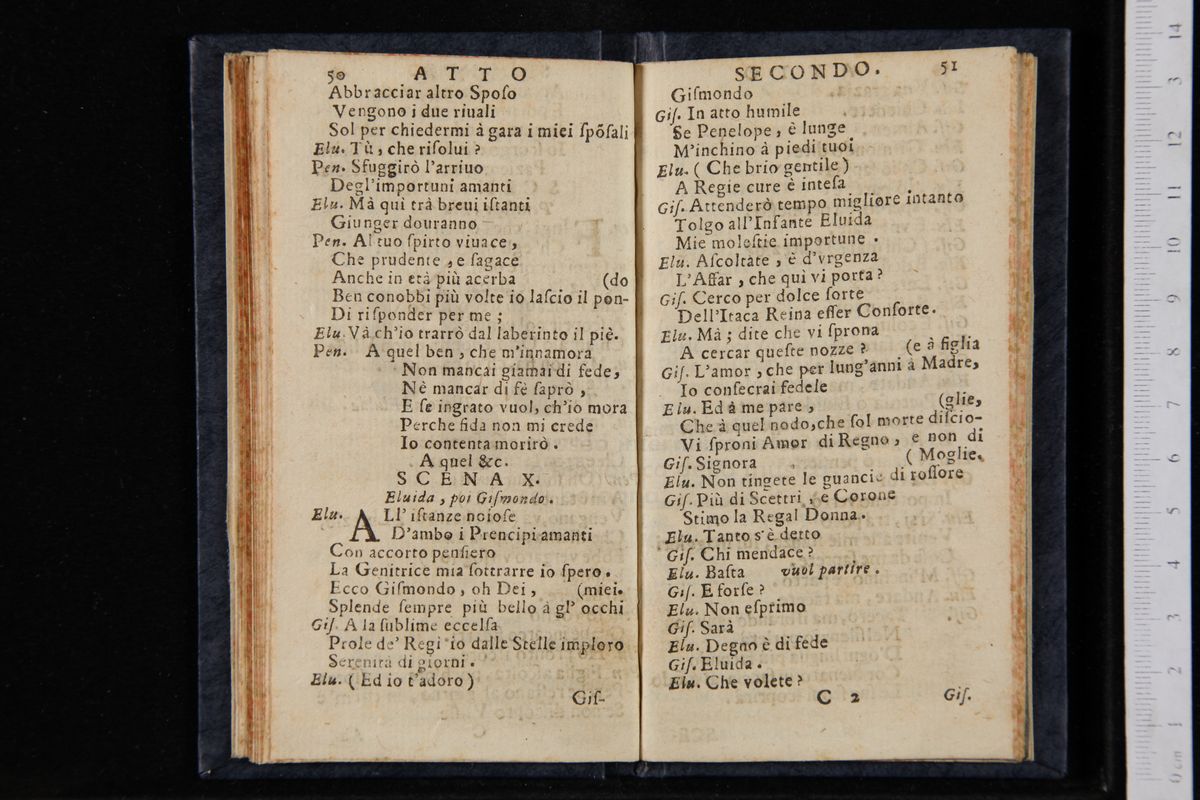 50 ATTO
Abbracciar altro Sposo
Vengono i due riuali
Sol per chiedermi à gara i miei spõsali
Elu. Tù, che risolui ?
Pen. Sfuggirò l'arriuo
Degl'importuni amanti
Elu. Mà quì trà breui istanti
Giunger douranno
Pen. Al tuo spirto viuace ,
Che prudente , e sagace
Anche in età più acerba (do
Ben conobbi più volte io lascio il pon-
Di risponder per me ;
Elu. Và ch'io trarrò dal laberinto il piè.
Pen. A quel ben , che m'innamora
Non mancai giamai di fede,
Nè mancar di fè saprò ,
E se ingrato vuol, ch'io mora
Perche fida non mi crede
Io contenta morirò .
A quel &c.
SCENA X.
Eluida , poi Gismondo .
Elu. ALl' istanze noiose
D'ambo i Prencipi amanti
Con accorto pensiero
La Genitrice mia sottrarre io spero .
Ecco Gismondo , oh Dei , (miei.
Splende sempre più bello à gl' occhi
Gis. A la sublime eccelsa
Prole de' Regi io dalle Stelle imploro
Serenità di giorni .
Elu. ( Ed io t'adoro )
Gis-
SECONDO. 51
Gismondo
Gis. In atto humile
Se Penelope , è lunge
M'inchino à piedi tuoi
Elu. ( Che brio gentile )
A Regie cure è intesa
Gis. Attenderò tempo migliore intanto
Tolgo all'Infante Eluida
Mie molestie importune .
Elu. Ascoltate , è d'vrgenza
L'Affar , che quì vi porta ?
Gis. Cerco per dolce sorte
Dell'Itaca Reina esser Consorte.
Elu. Mà ; dite che vi sprona
A cercar queste nozze ? (e à figlia
Gis. L'amor , che per lung'anni à Madre,
Io consecrai fedele
Elu. Ed à me pare , (glie,
Che à quel nodo, che sol morte discio-
Vi sproni Amor di Regno , e non di
Gis. Signora ( Moglie.
Elu. Non tingete le guancie di rossore
Gis. Più di Scettri , e Corone
Stimo la Regal Donna .
Elu. Tanto s'è detto
Gis. Chi mendace ?
Elu. Basta vuol partire .
Gis. E forse ?
Elu. Non esprimo
Gis. Sarà
Elu. Degno è di fede
Gis. Eluida .
Elu. Che volete ?
C 2 Gis.